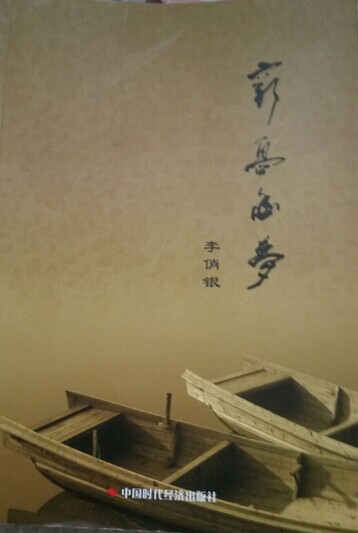 梦
李俏银
中国时代经济出版社